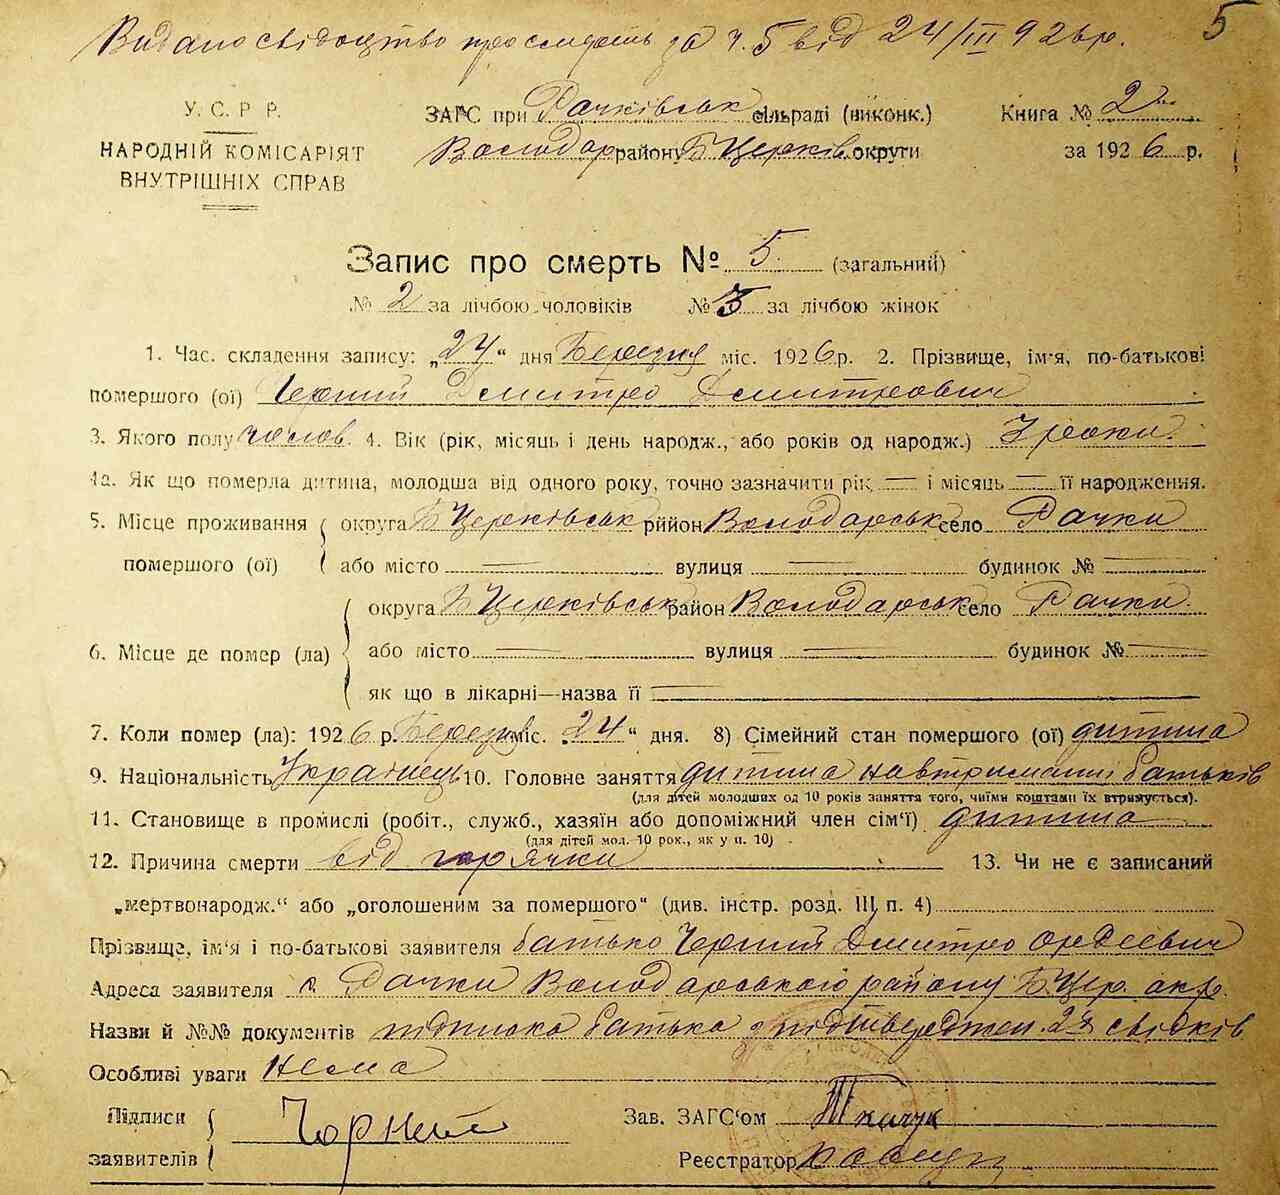 Видано свідоцтво про смерть за ч. 5 від 24/III 926 р. 5
У. С. Р. Р.
НАРОДНІЙ КОМІСАРІЯТ
ВНУТРІШНІХ СПРАВ
ЗАГС при Рачківськ сільраді (виконк.)
Володар району Б Церків округи
Книга № 2
за 1926 р.
Запис про смерть № 5 (загальний)
№ 2 за лічбою чоловіків № 3 за лічбою жінок
1. Час. складення запису: „24“ дня Березня міс. 1926 р. 2. Прізвище, ім'я, по-батькові
помершого (ої) Чорний Дмитро Дмитрович
3. Якого полу чолов. 4. Вік (рік, місяць і день народж., або років од народж.) 3 роки.
4а. Як що померла дитина, молодша від одного року, точно зазначити рік — і місяць — її народження.
5. Місце проживання округа Б Церківськ рййон Володарськ село Рачки
помершого (ої) або місто — вулиця — будинок № —
округа Б Церківськ район Володарськ село Рачки.
6. Місце де помер (ла) або місто — вулиця — будинок № —
як що в лікарні—назва її —
7. Коли помер (ла): 1926 р. Березня міс. „24“ дня. 8) Сімейний стан помершого (ої) дитина
9. Національність Українець 10. Головне заняття дитина на втриманні батьків
(для дітей молодших од 10 років заняття того, чиїми коштами їх втримується).
11. Становище в промислі (робіт., служб., хазяїн або допоміжний член сім'ї) дитина
(для дітей мол. 10 рок., як у п. 10)
12. Причина смерти від горячки 13. Чи не є записаний
„мертвонародж.“ або „оголошеним за помершого“ (див. інстр. розд. III п. 4)
Прізвище, ім'я і по-батькові заявителя батько Чорний Дмитро
Адреса заявителя с. Рачки Володарського району Б. Цер. окр.
Назви й №№ документів підписка батька з підтверджен. 2х свідків
Особливі уваги Нема
Підписи
заявителів Чорний
Зав. ЗАГС'ом Ткачук
Реєстратор